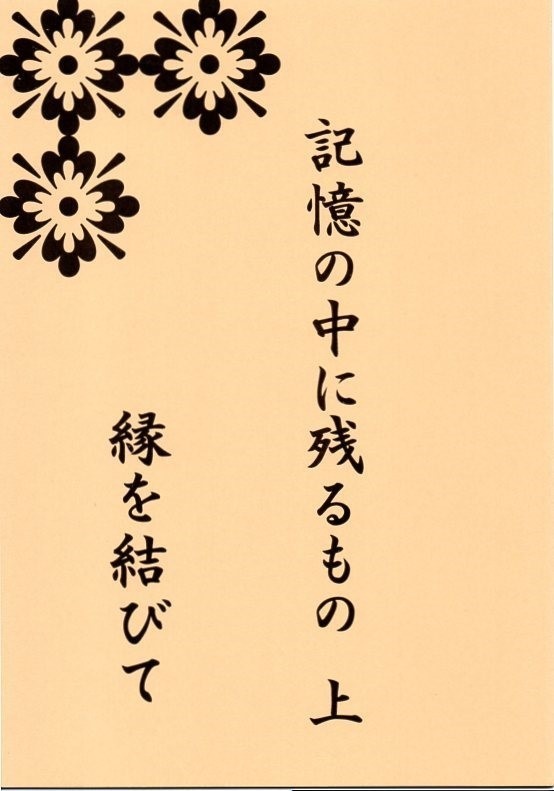 記憶の中に残るもの 上
縁を結びて